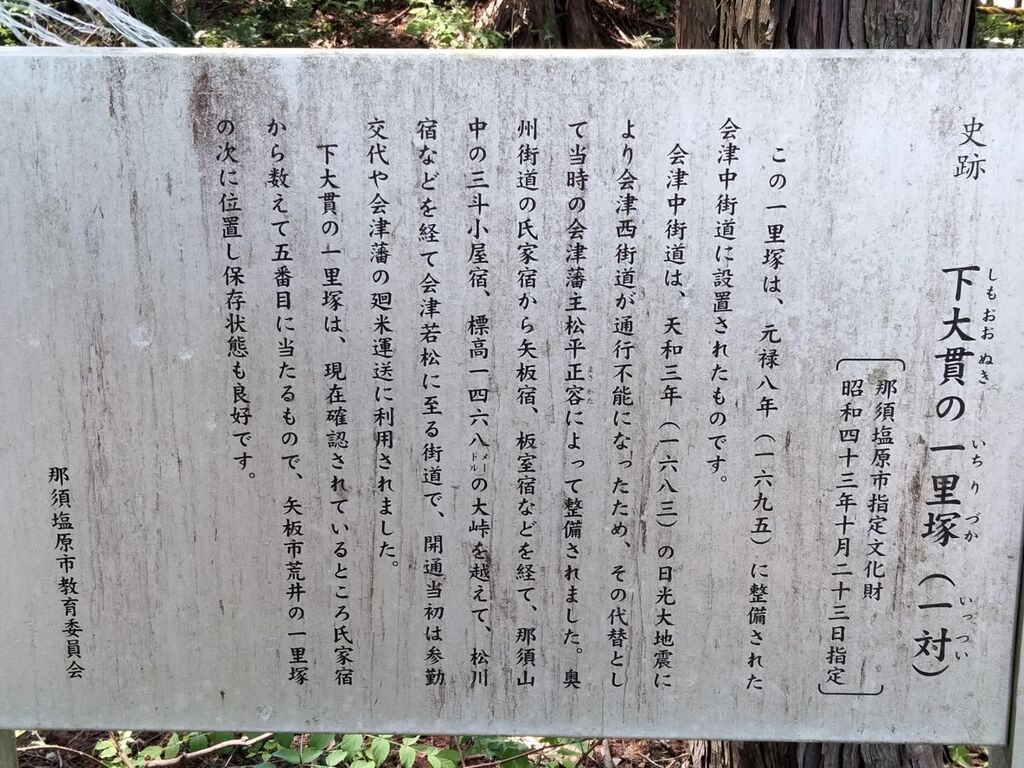 史跡
下大貫の一里塚（一対）
しもおおぬき いちりづか いっつい
那須塩原市指定文化財
昭和四十三年十月二十三日指定
この一里塚は、元禄八年（一六九五）に整備された
会津中街道に設置されたものです。
会津中街道は、天和三年（一六八三）の日光大地震に
より会津西街道が通行不能になったため、その代替とし
て当時の会津藩主松平正容によって整備されました。奥
まさかた
州街道の氏家宿から矢板宿、板室宿などを経て、那須山
中の三斗小屋宿、標高一四六八メートルの大峠を越えて、松川
宿などを経て会津若松に至る街道で、開通当初は参勤
交代や会津藩の廻米運送に利用されました。
下大貫の一里塚は、現在確認されているところ氏家宿
から数えて五番目に当たるもので、矢板市荒井の一里塚
の次に位置し保存状態も良好です。
那須塩原市教育委員会